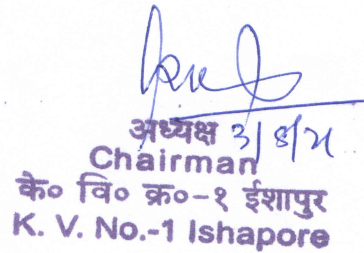 अध्यक्ष 3/8/21
Chairman
के० वि० क्र०-१ ईशापुर
K. V. No.-1 Ishapore